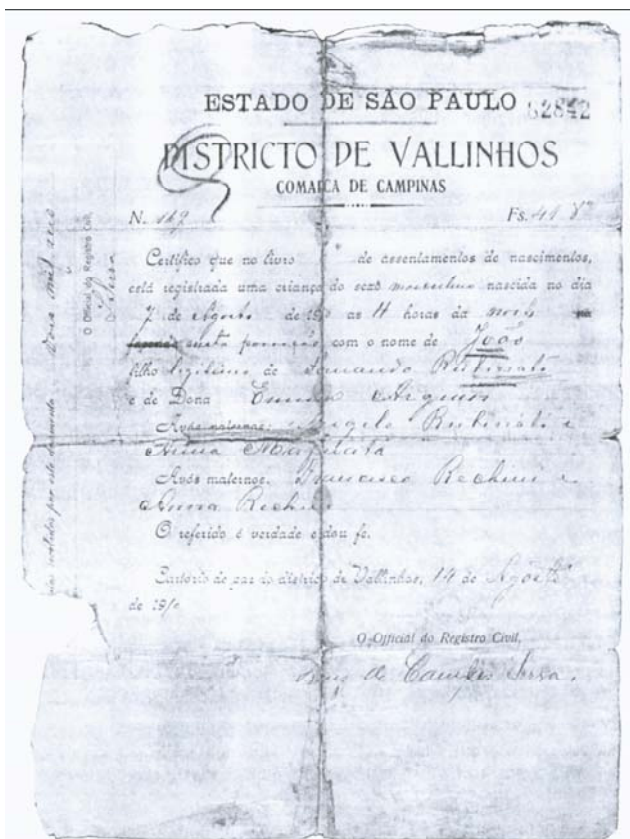 ESTADO DE SÃO PAULO
62842
DISTRICTO DE VALLINHOS
COMARCA DE CAMPINAS
N. 169 Fs. 41 Vº
Certifico que no livro de assentamentos de nascimentos,
está registrada uma criança do sexo masculino nascida no dia
7 de Agosto de 19 as 4 horas da noite
nesta povoação com o nome de João
filho legitimo de Fernando Rubinato
e de Dona
Avós maternos: Angelo Rubinato e
Anna
Avós maternos, Francisco Rechini e
Anna Rechini
O referido é verdade e dou fé.
Cartorio de paz do districto de Vallinhos, 14 de Agosto
de 1910
O Official do Registro Civil,
de Campos Serra.
O Official do Registro Civil,
Serra
recebidos por este documento Dois mil reis